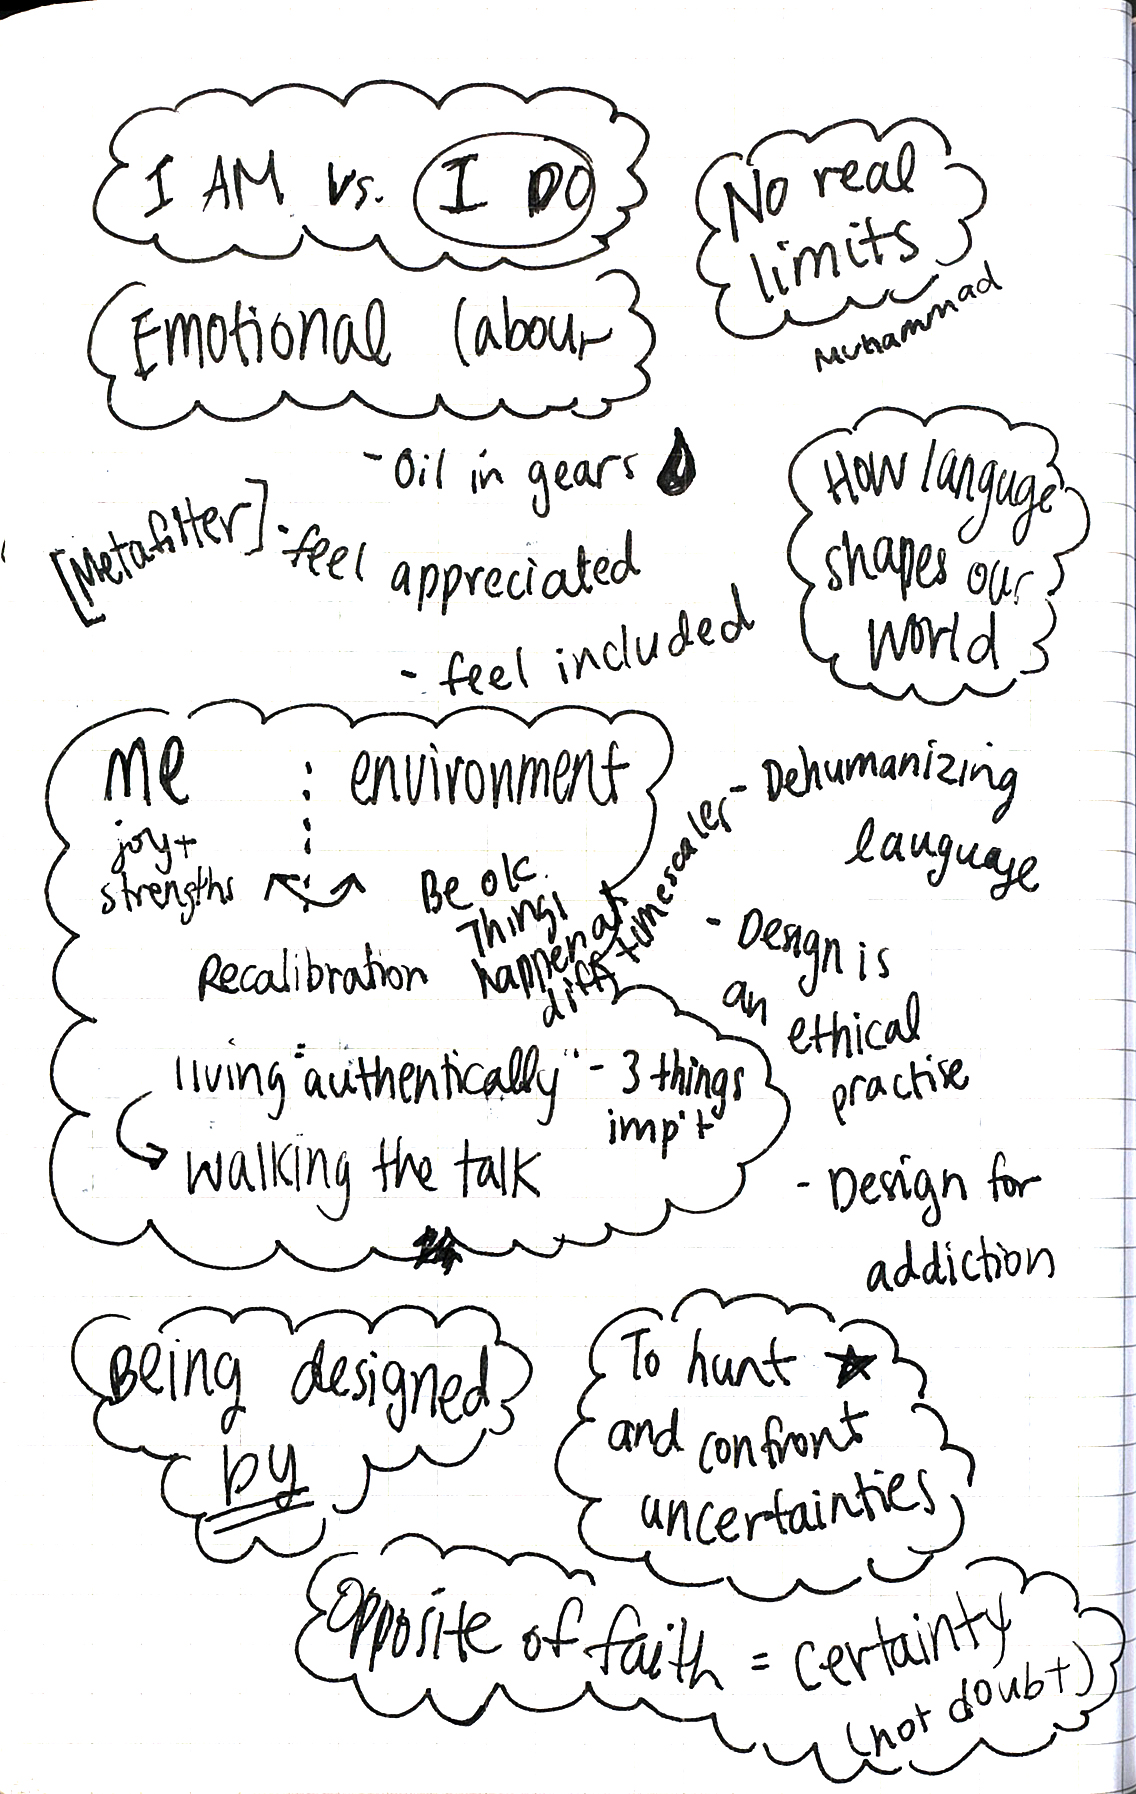 I AM vs. I DO
No real
limits
Muhammad
Emotional labour
- Oil in gears
[Metafilter] - feel
appreciated
- feel included
How languge
shapes our
world
- Dehumanizing
language
- Design is
an ethical
practise
- Design for
addiction
me : environment
joy +
strengths
Be ok.
Things
happen at
diff timescales
Recalibration
living "authentically" - 3 things
imp't
walking the talk
Being designed
by
To hunt
and confront
uncertainties
Opposite of faith = certainty
(not doubt)